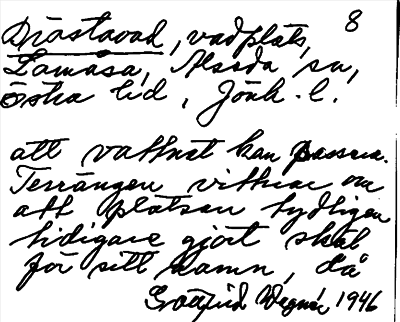 8
Drästavad, vadplats,
Lamåsa, Alseda sn,
Östra hd, Jönk. l.
att vattnet kan passera.
Terrängen vittnar om
att platsen tydligen
tidigare gjort skäl
för sitt namn, då
Gottfrid Wegnér 1946